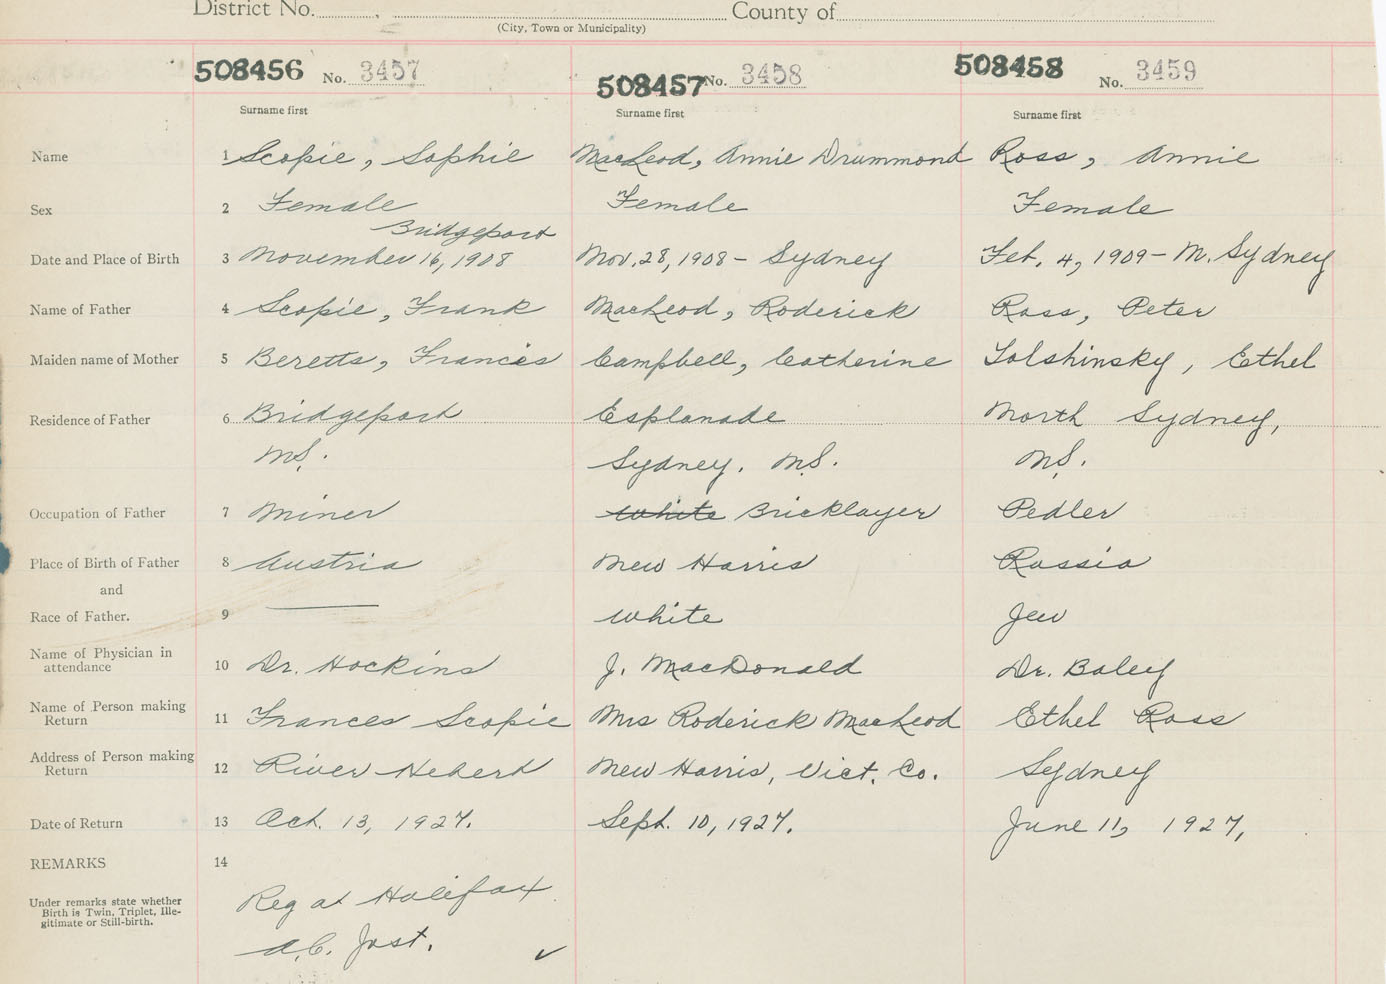 District No. County of
(City, Town or Municipality)
508456 No. 3457 508457 No. 3458 508458 No. 3459
Surname first Surname first Surname first
Name 1 Scopie, Sophie MacLeod, Annie Drummond Ross, Annie
Sex 2 Female Female Female
Bridgeport
Date and Place of Birth 3 November 16, 1908 Nov. 28, 1908 - Sydney Feb. 4, 1909 - N. Sydney
Name of Father 4 Scopie, Frank MacLeod, Roderick Ross, Peter
Maiden name of Mother 5 Beretts, Frances Campbell, Catherine Tolshinsky, Ethel
Residence of Father 6 Bridgeport Esplanade North Sydney,
N.S. Sydney. N.S. N.S.
Occupation of Father 7 Miner white Bricklayer Pedler
Place of Birth of Father 8 Austria New Harris Russia
and
Race of Father. 9 white Jew
Name of Physician in
attendance 10 Dr. Hockins J. MacDonald Dr. Baley
Name of Person making
Return 11 Frances Scopie Mrs Roderick MacLeod Ethel Ross
Address of Person making
Return 12 River Hebert New Harris, Vict. Co. Sydney
Date of Return 13 Oct. 13, 1927. Sept. 10, 1927. June 11, 1927,
REMARKS 14
Under remarks state whether
Birth is Twin, Triplet, Ille-
gitimate or Still-birth.
Reg at Halifax
A.C. Jost.